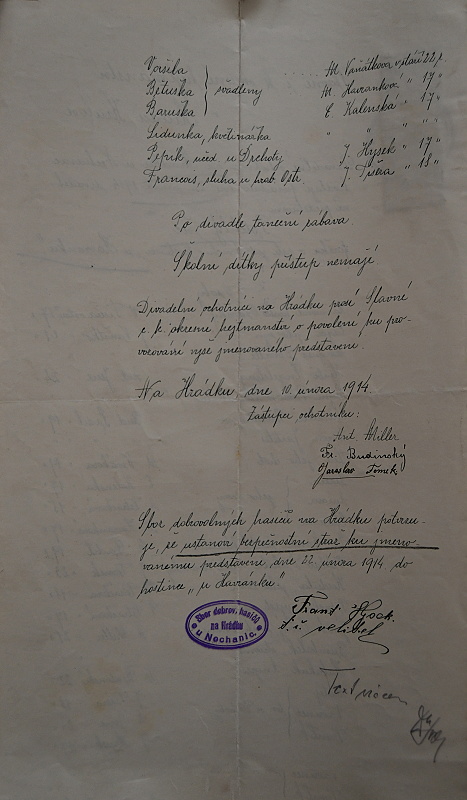 Voršila M. Vaňátkova v stáří 22 r.
Bětuška } švadleny M. Havrankova " 17 "
Baruška E. Kalenska " 17 "
Lidunka, květinářka " " " "
Pepík, učed. u Drehoty J. Hysek " 17 "
Francois, sluha u hrab. Ostr. J. Tršera " 18 "
Po divadle taneční zábava.
Školní dítky přístup nemají
Divadelní ochotníci na Hrádku prosí Slavné
c. k. okresní hejtmanství o povolení ku pro-
vozování výše jmenovaného představení.
Na Hrádku, dne 10. února 1914.
Zástupci ochotníků:
Ant. Miller
Fr. Budinský
Jaroslav Tomek
Sbor dobrovolných hasičů na Hrádku potvrzu-
je, že ustanoví bezpečnostní stráž ku jmeno-
vanému představení, dne 22. února 1914, do
hostince „u Havránků."
Sbor dobrov. hasičů
na Hrádku
u Nechanic.
Frant. Hysek
velitel
Text vrácen